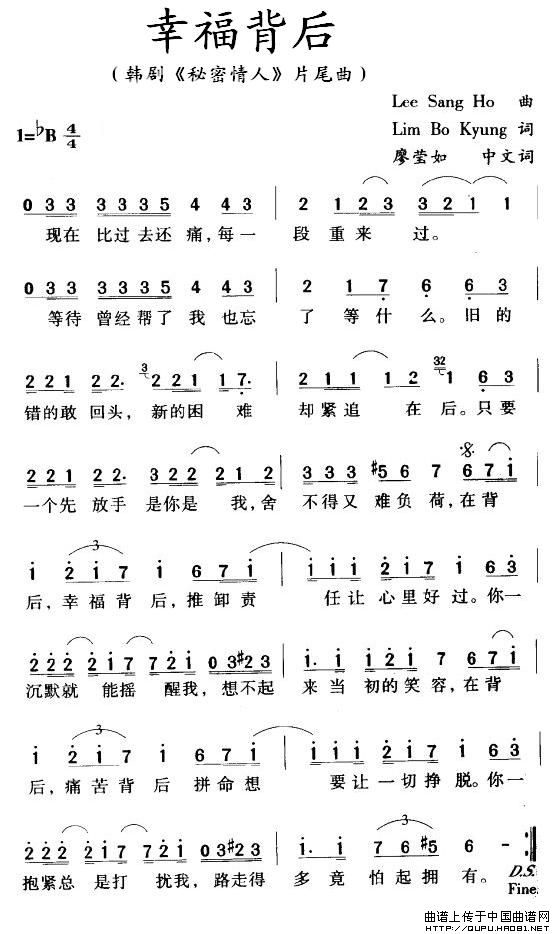 幸福背后
(韩剧《秘密情人》片尾曲)
Lee Sang Ho 曲
1=♭B 4/4 Lim Bo Kyung 词
廖莹如 中文词
0 3 3 3 3 3 5 4 4 3 | 2 1 2 3 3 2 1 1
现在 比过去还痛,每一 段重来 过。
0 3 3 3 3 3 5 4 4 3 | 2 1 7 6 6 3
等待 曾经帮了 我 也忘 了 等什 么。旧的
2 2 1 2 2. 3 2 2 1 1 7. | 2 1 1 1 2 32 1 6 3
错的敢 回头, 新的困 难 却紧追 在 后。只要
2 2 1 2 2. 3 2 2 2 1 2 | 3 3 3 #5 6 7 6 7 1
一个先 放手 是你是 我,舍 不得又 难负荷,在背
1 2 1 7 1 6 7 1 | 1 1 1 2 1 7 1 6 3
后,幸福背 后,推卸责 任让 心里好 过。你一
2 2 2 2 1 7 7 2 1 0 3 #2 3 | 1. 1 1 2 1 7 6 7 1
沉默就 能摇 醒我, 想不起 来当 初的笑 容,在背
1 2 1 7 1 6 7 1 | 1 1 1 2 1 7 6 3
后,痛苦背 后 拼命想 要让一切挣 脱。你一
2 2 2 2 1 7 7 2 1 0 3 #2 3 | 2 1 7 6 #5 6 -
抱紧总 是打 扰我,路走得 多竟 怕起拥 有。
D.S.
Fine.
曲谱上传于中国曲谱网
HTTP://QUPU.HAO81.NET